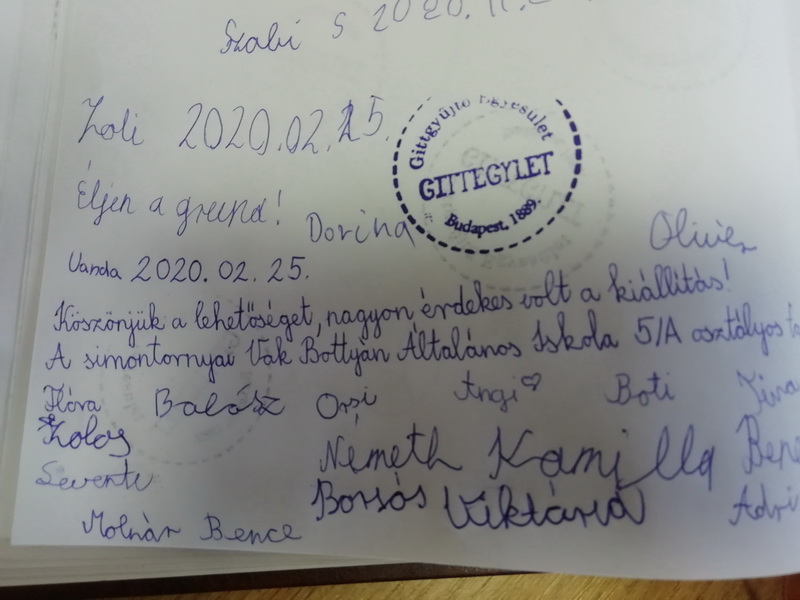 Szabi S 2020.11.
Zoli 2020.02.25.
Gittgyűjtő Egyesület
GITTEGYLET
Budapest, 1889.
Éljen a grund!
Dorina
Olivér
Vanda 2020.02.25.
Köszönjük a lehetőséget, nagyon érdekes volt a kiállítás!
A simontornyai Vak Bottyán Általános Iskola 5/A osztályos ta
Flóra Balázs Orsi Angi♡ Boti
Zolos
Németh Kamilla Bene
Levente
Borsós Viktória Adri
Molnár Bence